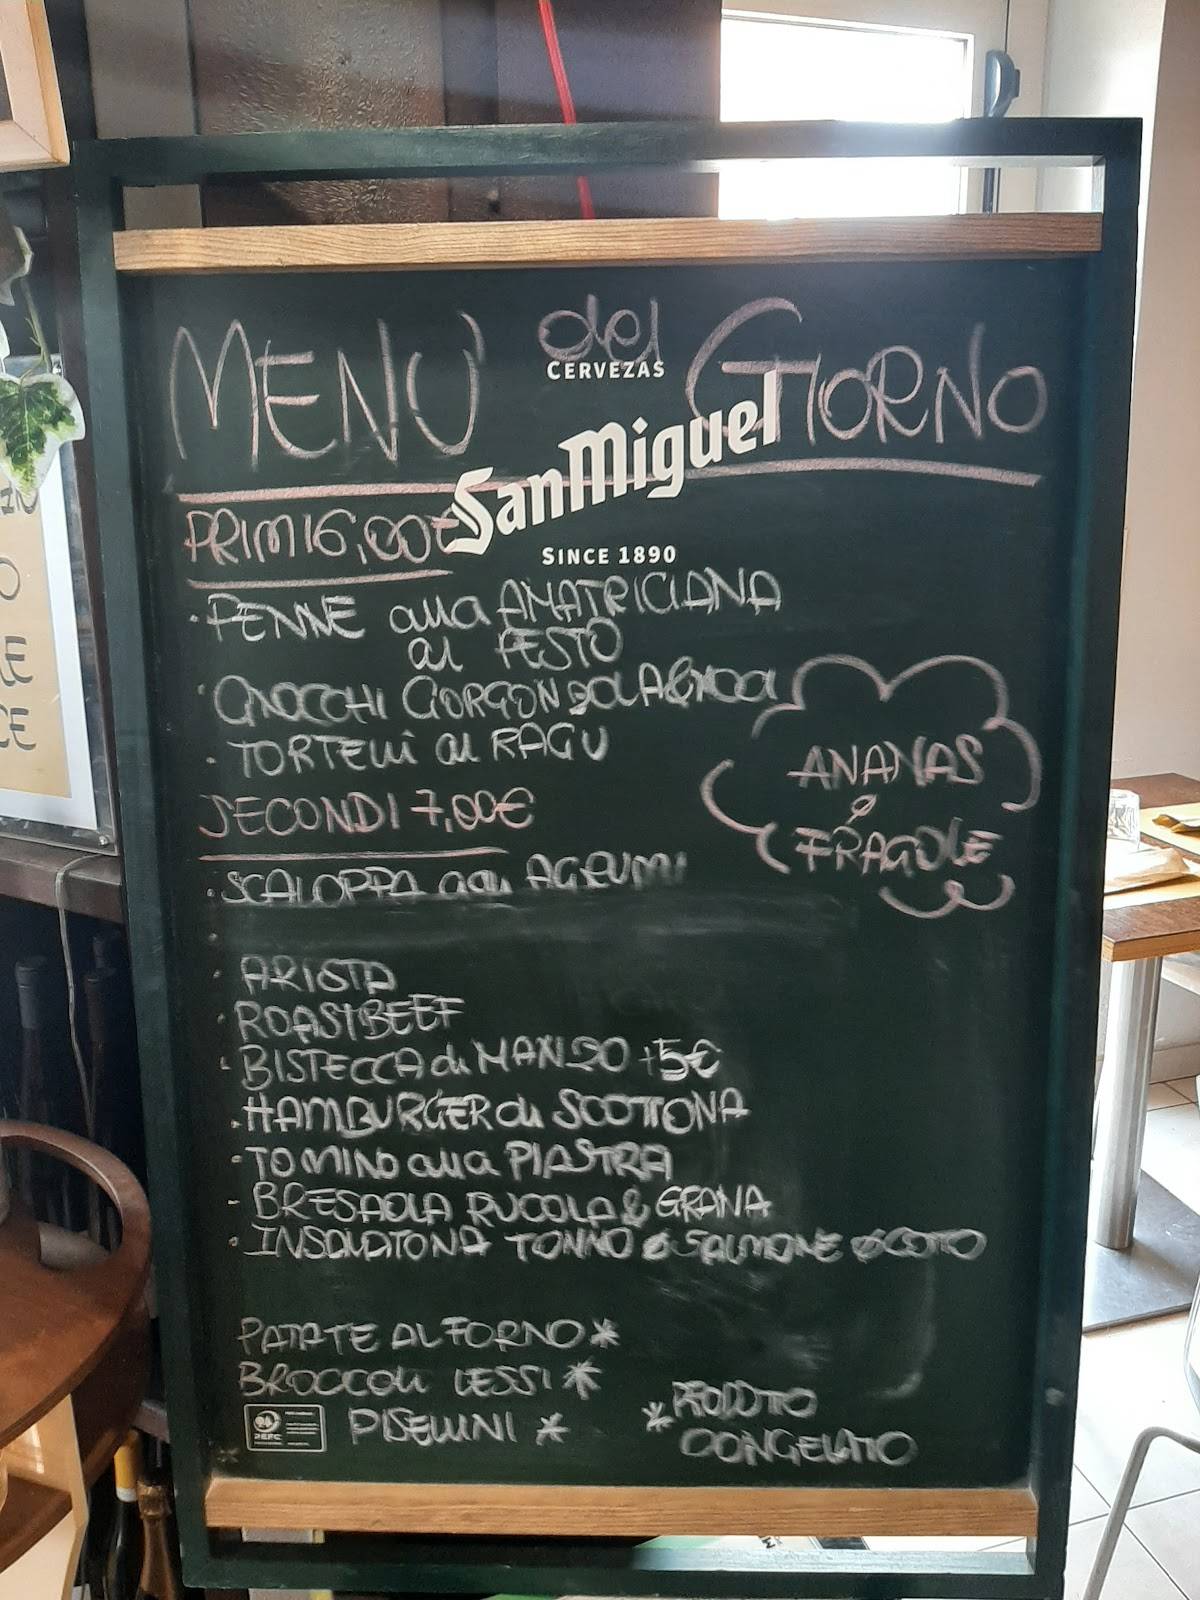 MENU' del GIORNO
CERVEZAS
San Miguel
SINCE 1890
PRIMI 6,00€
· PENNE alla AMATRICIANA
al PESTO
· GNOCCHI GORGONZOLA & NOCI
· TORTELLI al RAGU
ANANAS
o
FRAGOLE
SECONDI 7,00€
· SCALOPPA agli AGRUMI
· ARISTA
· ROASTBEEF
- BISTECCA di MANZO +5€
· HAMBURGER di SCOTTONA
- TOMINO alla PIASTRA
- BRESAOLA RUCOLA & GRANA
· INSALATONA TONNO o SALMONE o COTTO
PATATE AL FORNO *
BROCCOLI LESSI *
PISELLINI *
* PRODOTTO
CONGELATO
PEFC